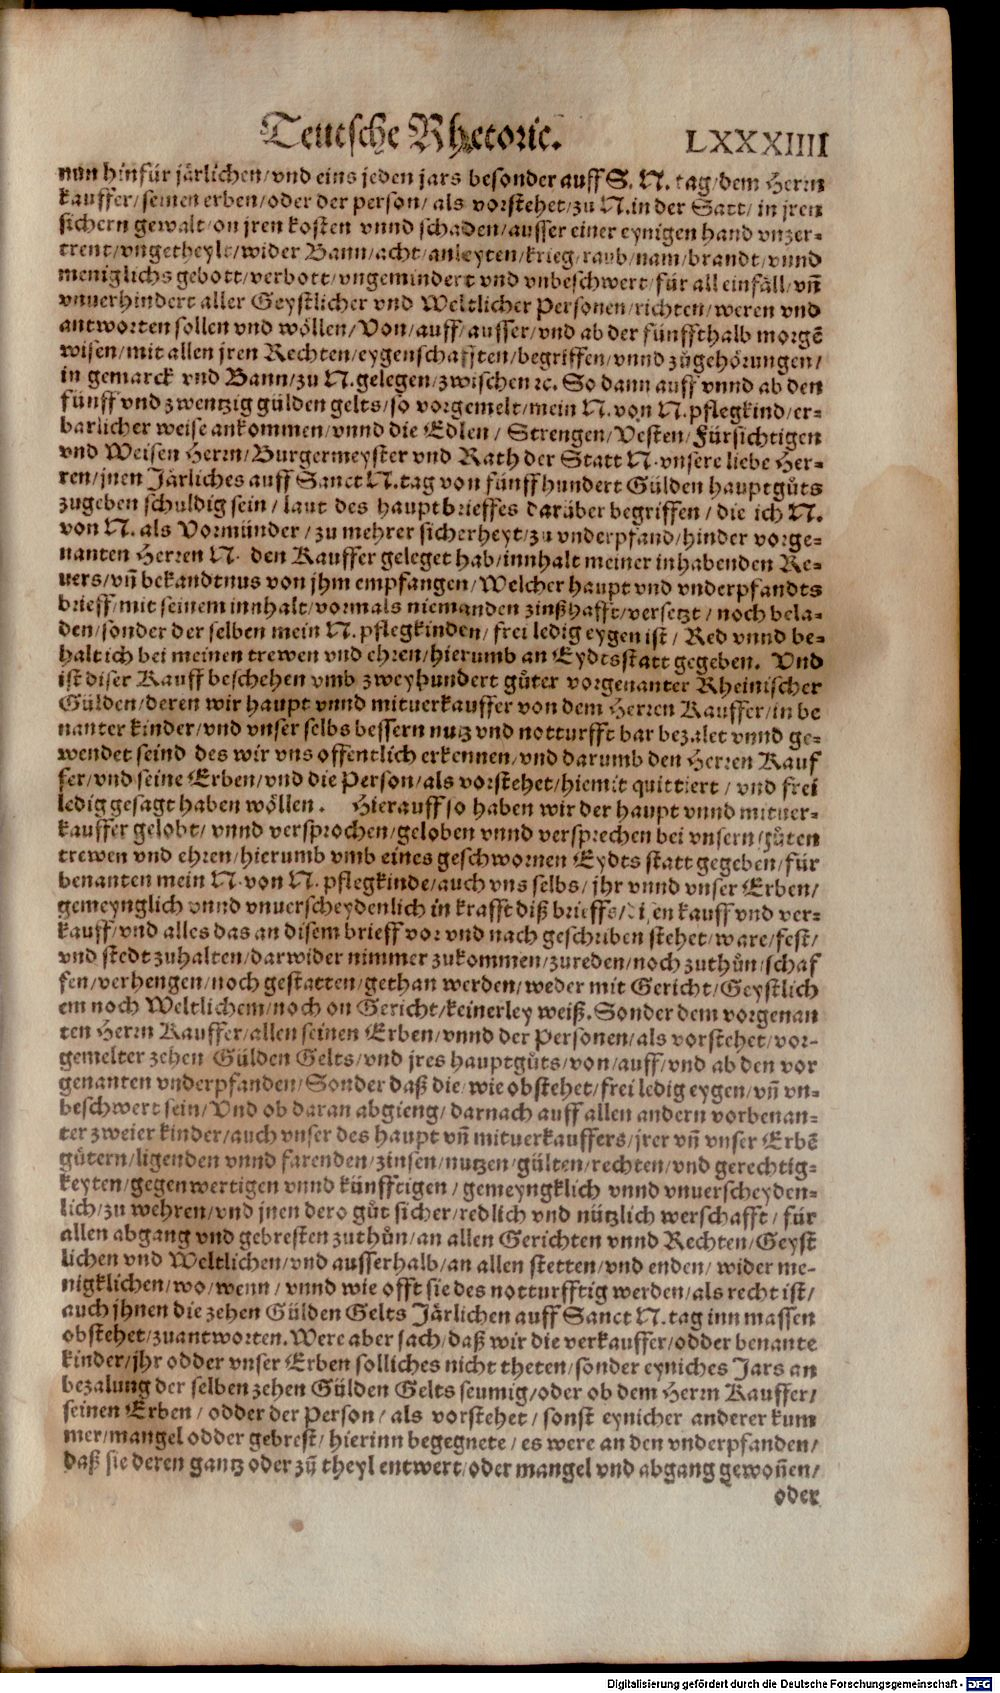 Teutsche Rhetoric. LXXXIIII
nun hinfür järlichen/vnd eins jeden jars besonder auff S. N. tag/dem Herrn
kauffer/seinen erben/oder der person/als vorstehet/zu N.in der Satt/in jren
sichern gewalt/on jren kosten vnnd schaden/ausser einer eynigen hand vnzer-
trent/vngetheylt/wider Bann/acht/anleyten/krieg/raub/nam/brandt/vnnd
meniglichs gebott/verbott/vngemindert vnd vnbeschwert/für all einfäll/vñ
vnuerhindert aller Geystlicher vnd Weltlicher Personen/richten/weren vnd
antworten sollen vnd wöllen/Von/auff/ausser/vnd ab der fünffthalb morgẽ
wisen/mit allen jren Rechten/eygenschafften/begriffen/vnnd zůgehörungen/
in gemarck vnd Bann/zu N.gelegen/zwischen ꝛc. So dann auff vnnd ab den
fünff vnd zwentzig gülden gelts/so vorgemelt/mein N. von N. pflegkind/er-
barlicher weise ankommen/vnnd die Edlen/Strengen/Vesten/Fürsichtigen
vnd Weisen Herrn/Burgermeyster vnd Rath der Statt N. vnsere liebe Her-
ren/jnen Järliches auff Sanct N.tag von fünff hundert Gülden hauptgůts
zugeben schuldig sein/laut des hauptbrieffes darüber begriffen/die ich N.
von N. als Vormünder/zu mehrer sicherheyt/zu vnderpfand/hinder vorge-
nanten Herren N. den Kauffer geleget hab/innhalt meiner inhabenden Re-
uers/vñ bekandtnus von jhm empfangen/Welcher haupt vnd vnderpfandts
brieff/mit seinem innhalt/vormals niemanden zinßhafft/versetzt/noch bela-
den/sonder der selben mein N. pflegkinden/frei ledig eygen ist/Red vnnd be-
halt ich bei meinen trewen vnd ehren/hierumb an Eydtsstatt gegeben. Vnd
ist diser Kauff beschehen vmb zweyhundert gůter vorgenanter Rheinischer
Gülden/deren wir haupt vnnd mituerkauffer von dem Herren Kauffer/in be
nanter kinder/vnd vnser selbs bessern nutz vnd notturfft bar bezalet vnnd ge-
wendet seind des wir vns offentlich erkennen/vnd darumb den Herren Kauf
fer/vnd seine Erben/vnd die Person/als vorstehet/hiemit quittiert/vnd frei
ledig gesagt haben wöllen. Hierauff so haben wir der haupt vnnd mituer-
kauffer gelobt/vnnd versprochen/geloben vnnd versprechen bei vnsern gůten
trewen vnd ehren/hierumb vmb eines geschwornen Eydts statt gegeben/für
benanten mein N. von N. pflegkinde/auch vns selbs/jhr vnnd vnser Erben/
gemeynglich vnnd vnuerscheydenlich in krafft diß brieffs/disen kauff vnd ver-
kauff/vnd alles das an disem brieff vor vnd nach geschriben stehet/ware/fest/
vnd stedt zuhalten/darwider nimmer zukommen/zureden/noch zuthůn/schaf
fen/verhengen/noch gestatten/gethan werden/weder mit Gericht/Geystlich
em noch Weltlichem/noch on Gericht/keinerley weiß. Sonder dem vorgenan
ten Herrn Kauffer/allen seinen Erben/vnnd der Personen/als vorstehet/vor-
gemelter zehen Gülden Gelts/vnd jres hauptgůts/von/auff/vnd ab den vor
genanten vnderpfanden/Sonder daß die/wie obstehet/frei ledig eygen/vñ vn-
beschwert sein/Vnd ob daran abgieng/darnach auff allen andern vorbenan-
ter zweier kinder/auch vnser des haupt vñ mituerkauffers/jrer vñ vnser Erbẽ
gütern/ligenden vnnd farenden/zinsen/nutzen/gülten/rechten/vnd gerechtig-
keyten/gegenwertigen vnnd künfftigen/gemeyngklich vnnd vnuerscheyden-
lich/zu wehren/vnd jnen dero gůt sicher/redlich vnd nützlich werschafft/für
allen abgang vnd gebresten zuthůn/an allen Gerichten vnnd Rechten/Geyst
lichen vnd Weltlichen/vnd ausserhalb/an allen stetten/vnd enden/wider me-
nigklichen/wo/wenn/vnnd wie offt sie des notturfftig werden/als recht ist/
auch jhnen die zehen Gülden Gelts Järlichen auff Sanct N.tag inn massen
obstehet/zuantworten. Were aber sach/daß wir die verkauffer/odder benante
kinder/jhr odder vnser Erben solliches nicht theten/sonder eyniches Jars an
bezalung der selben zehen Gülden Gelts seumig/oder ob dem Herrn Kauffer/
seinen Erben/odder der Person/als vorstehet/sonst eynicher anderer kum
mer/mangel odder gebrest/hierinn begegnete/es were an den vnderpfanden/
daß sie deren gantz oder zů theyl entwert/oder mangel vnd abgang gewoñen/
oder
Digitalisierung gefördert durch die Deutsche Forschungsgemeinschaft - DFG